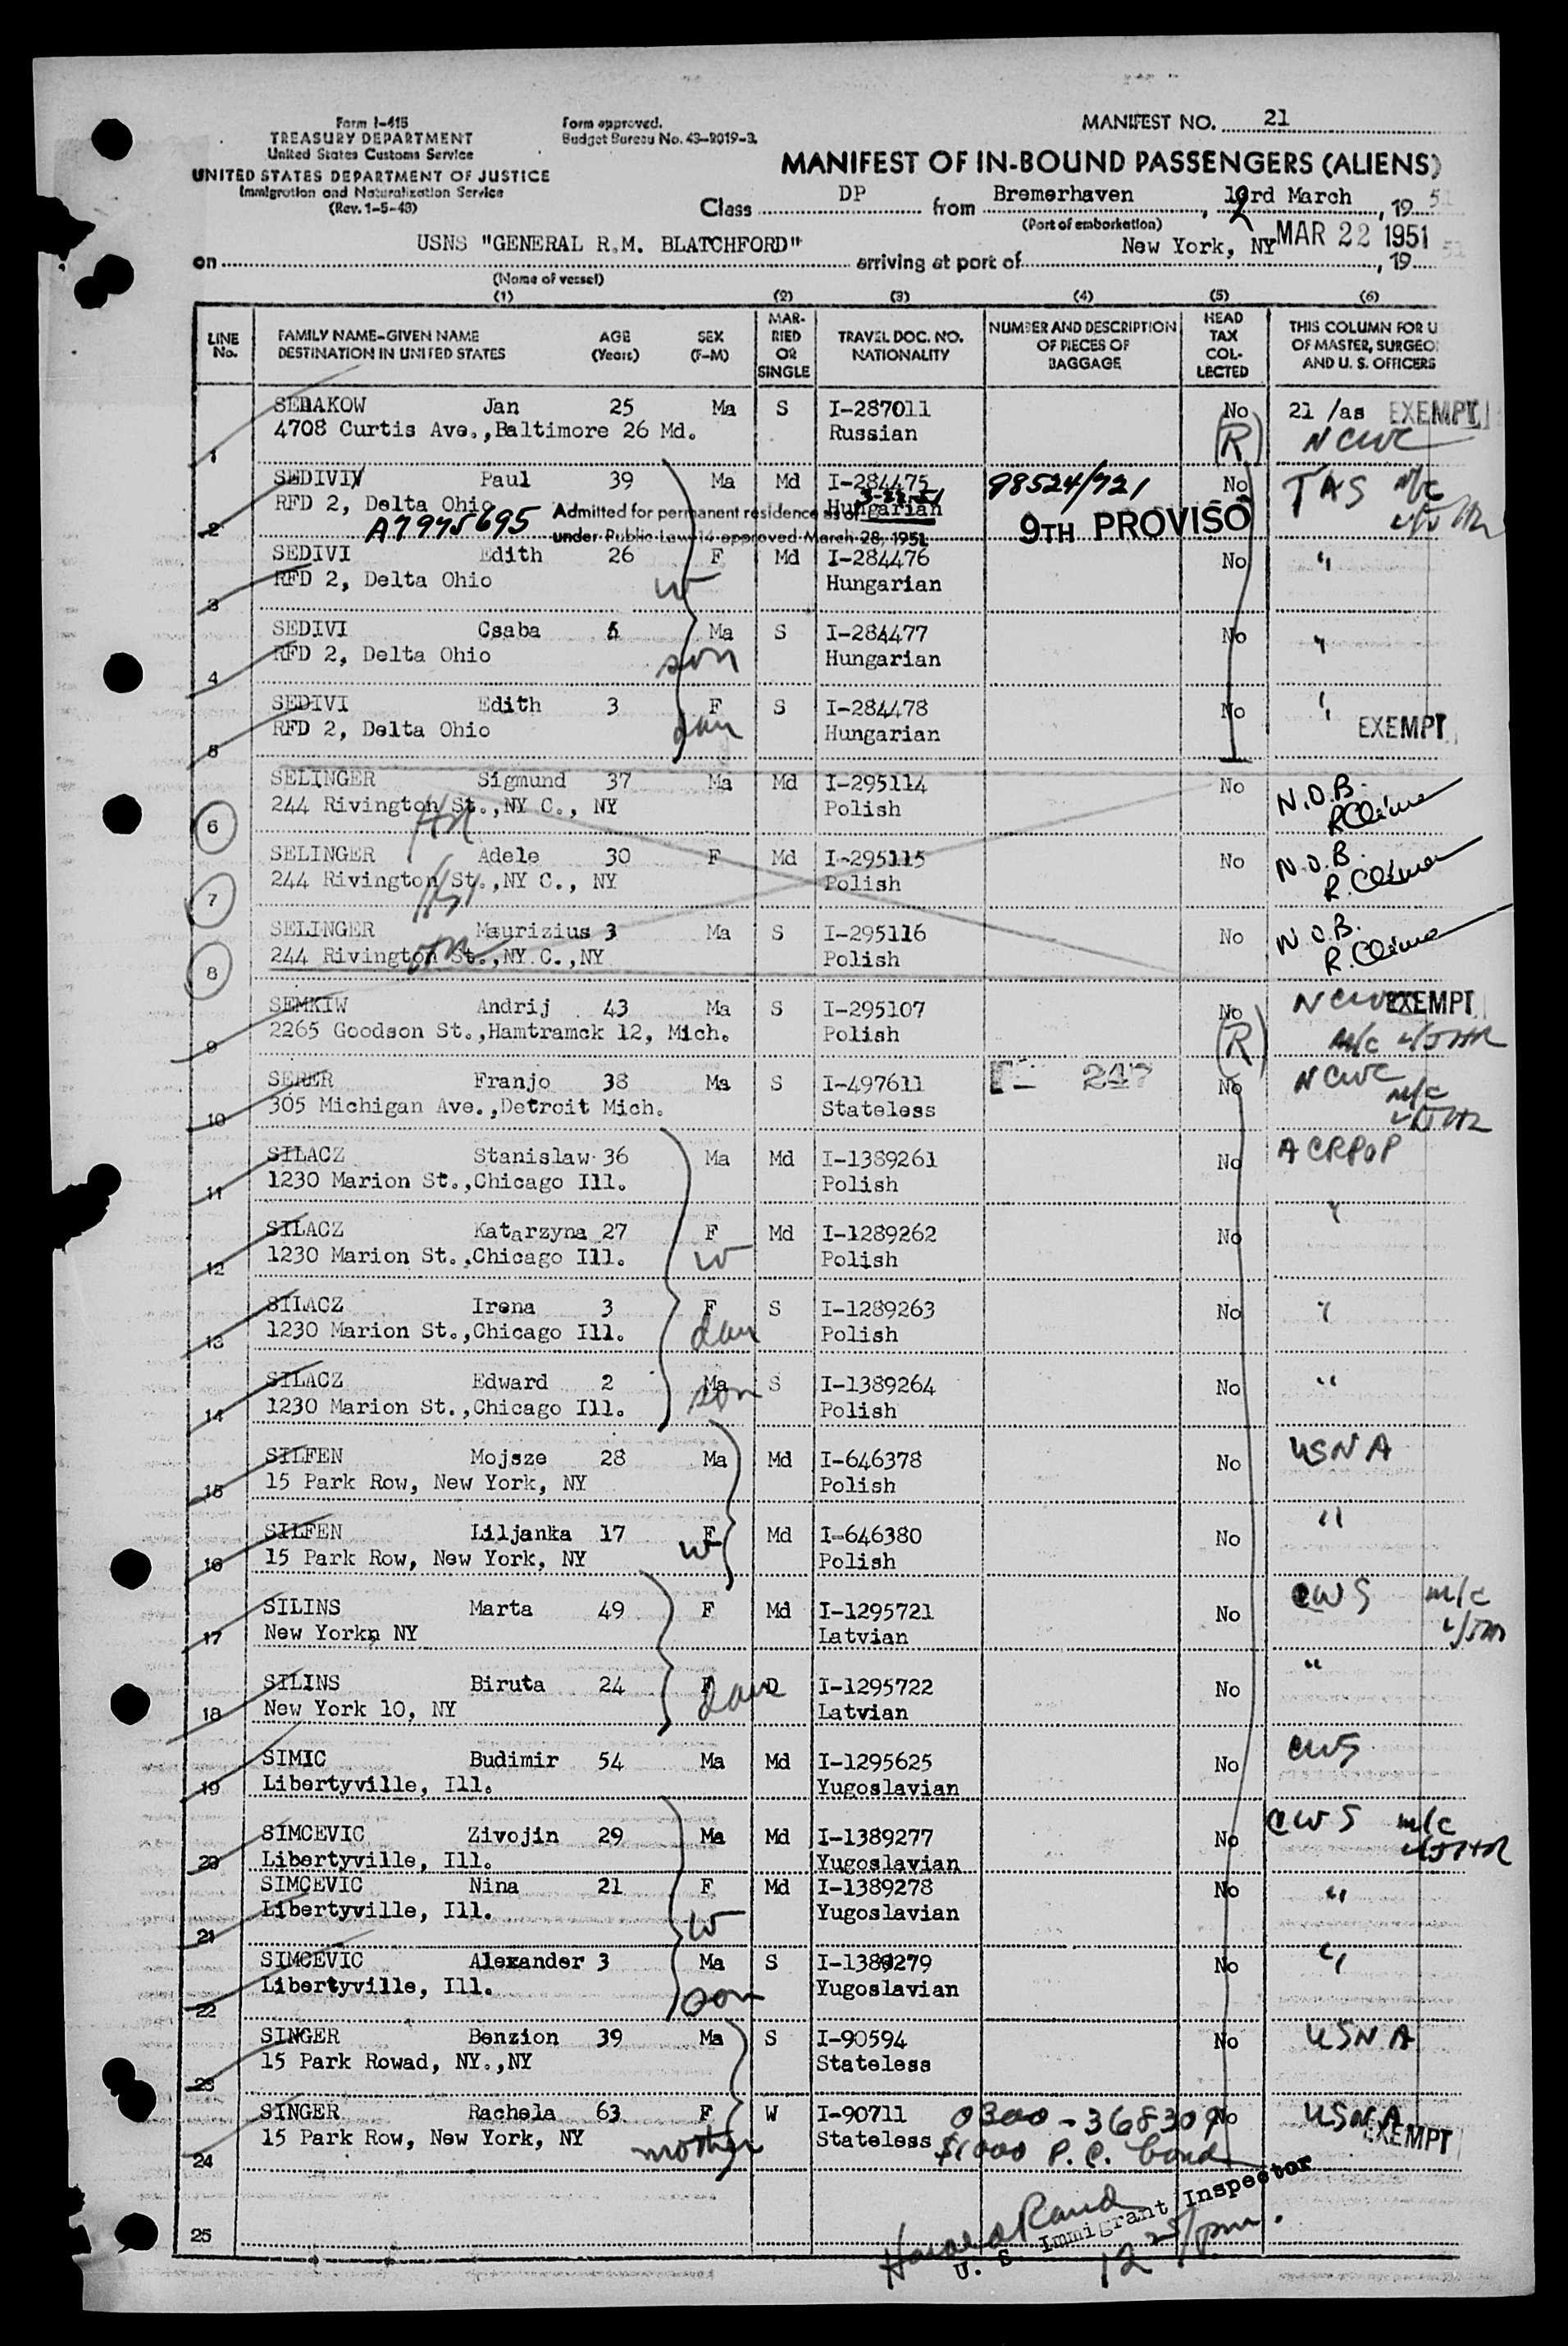 Form I-415
TREASURY DEPARTMENT
United States Customs Service
UNITED STATES DEPARTMENT OF JUSTICE
Immigration and Naturalization Service
(Rev. 1-5-48)
Form approved.
Budget Bureau No. 43-R019-3.
MANIFEST NO. 21
MANIFEST OF IN-BOUND PASSENGERS (ALIENS)
Class DP from Bremerhaven, rd March, 19 51
(Port of embarkation)
on USNS "GENERAL R.M. BLATCHFORD" arriving at port of New York, NY MAR 22 1951, 19 51
(Name of vessel)
(1) (2) (3) (4) (5) (6)
LINE No.
FAMILY NAME-GIVEN NAME AGE SEX
DESTINATION IN UNITED STATES (Years) (F-M)
MARRIED OR SINGLE
TRAVEL DOC. NO. NATIONALITY
NUMBER AND DESCRIPTION OF PIECES OF BAGGAGE
HEAD TAX COLLECTED
THIS COLUMN FOR U
OF MASTER, SURGEO
AND U. S. OFFICERS
SEDAKOW Jan 25 Ma S I-287011 No 21 /as EXEMPT
1 4708 Curtis Ave.,Baltimore 26 Md. Russian (R) NCWC
SEDIVIY Paul 39 Ma Md I-284475 98524/721 No TAS m/c
2 RFD 2, Delta Ohio Hungarian 9TH PROVISO
A7975695 Admitted for permanent residence as of 3-22-51
under Public Law 14 approved March 28, 1951
SEDIVI Edith 26 F Md I-284476 No "
3 RFD 2, Delta Ohio w Hungarian
SEDIVI Csaba Ma S I-284477 No "
4 RFD 2, Delta Ohio son Hungarian
SEDIVI Edith 3 F S I-284478 No "
5 RFD 2, Delta Ohio dau Hungarian EXEMPT
SELINGER Sigmund 37 Ma Md I-295114 No N.O.B.
6 244 Rivington St.,NY C., NY Polish
SELINGER Adele 30 F Md I-295115 No N.O.B.
7 244 Rivington St.,NY C., NY Polish
SELINGER Maurizius 3 Ma S I-295116 No N.O.B.
8 244 Rivington St.,NY C.,NY Polish
SEMKIW Andrij 43 Ma S I-295107 No NCWC EXEMPT
9 2265 Goodson St.,Hamtramck 12, Mich. Polish (R) m/c
SERER Franjo 38 Ma S I-497611 247 No NCWC m/c
10 305 Michigan Ave.,Detroit Mich. Stateless
SILACZ Stanislaw 36 Ma Md I-1389261 No
11 1230 Marion St.,Chicago Ill. Polish
SILACZ Katarzyna 27 F Md I-1289262 No "
12 1230 Marion St.,Chicago Ill. w Polish
SILACZ Irena 3 F S I-1289263 No "
13 1230 Marion St.,Chicago Ill. dau Polish
SILACZ Edward 2 Ma S I-1389264 No "
14 1230 Marion St.,Chicago Ill. son Polish
SILFEN Mojsze 28 Ma Md I-646378 No USNA
15 15 Park Row, New York, NY Polish
SILFEN Liljanka 17 F Md I-646380 No "
16 15 Park Row, New York, NY w Polish
SILINS Marta 49 F Md I-1295721 No CWS m/c
17 New Yorkn NY Latvian
SILINS Biruta 24 F D I-1295722 No "
18 New York 10, NY dau Latvian
SIMIC Budimir 54 Ma Md I-1295625 No CWS
19 Libertyville, Ill. Yugoslavian
SIMCEVIC Zivojin 29 Ma Md I-1389277 No CWS m/c
20 Libertyville, Ill. Yugoslavian
SIMCEVIC Nina 21 F Md I-1389278 No "
21 Libertyville, Ill. w Yugoslavian
SIMCEVIC Alexander 3 Ma S I-1389279 No "
22 Libertyville, Ill. son Yugoslavian
SINGER Benzion 39 Ma S I-90594 No USNA
23 15 Park Rowad, NY.,NY Stateless
SINGER Rachela 63 F W I-90711 0300-368309 No USNA EXEMPT
24 15 Park Row, New York, NY mother Stateless $1000 P.C. bond
25
Harold Rand
U. S. Immigrant Inspector